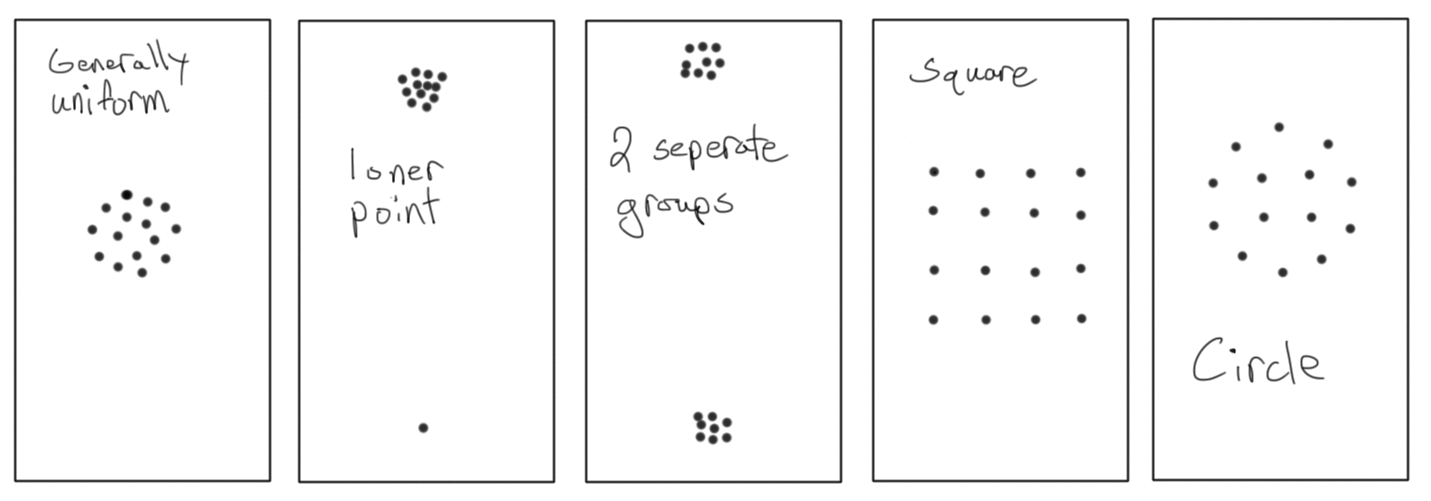 Generally
uniform
loner
point
2 seperate
groups
Square
Circle